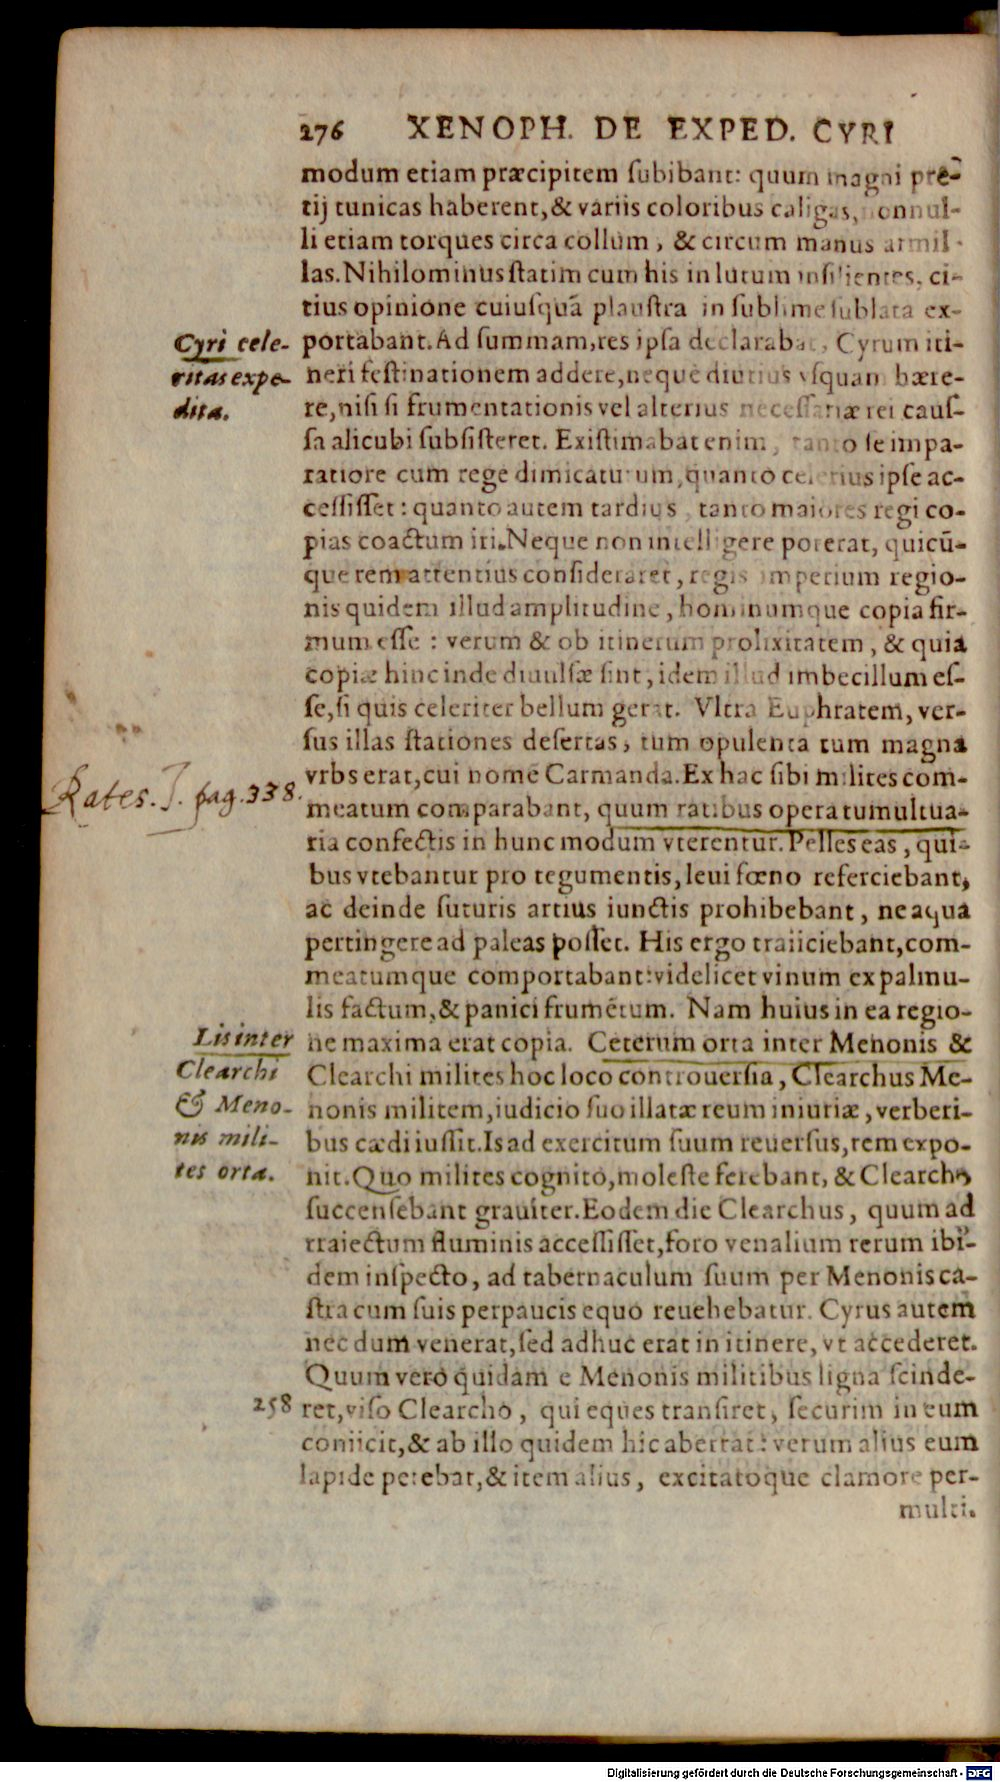 276 XENOPH. DE EXPED. CYRI
modum etiam præcipitem ſubibant: quum magni pre-
tij tunicas haberent,& variis coloribus caligas, nonnul-
li etiam torques circa collum, & circum manus armil-
las. Nihilominus ſtatim cum his in lutum inſilientes, ci-
tius opinione cuiuſquā plauſtra in ſublime ſublata ex-
Cyri cele-
ritas expe-
dita.
portabant. Ad ſummam, res ipſa declarabat, Cyrum iti-
neri feſtinationem addere, neque diutius vſquam hære-
re, niſi ſi frumentationis vel alterius neceſſariæ rei cauſ-
ſa alicubi ſubſiſteret. Exiſtimabat enim, tanto ſe impa-
ratiore cum rege dimicaturum, quanto celerius ipſe ac-
ceſſiſſet: quanto autem tardius, tanto maiores regi co-
pias coactum iri. Neque non intelligere poterat, quicū-
que rem attentius conſideraret, regis imperium regio-
nis quidem illud amplitudine, hominumque copia fir-
mum eſſe: verum & ob itinerum prolixitatem, & quia
copiæ hinc inde diuulſæ ſint, idem illud imbecillum eſ-
ſe, ſi quis celeriter bellum gerat. Vltra Euphratem, ver-
ſus illas ſtationes deſertas, tum opulenta tum magna
vrbs erat, cui nomē Carmanda. Ex hac ſibi milites com-
Rates. J. pag. 338.
meatum comparabant, quum ratibus opera tumultua-
ria confectis in hunc modum vterentur. Pelles eas, qui-
bus vtebantur pro tegumentis, leui fœno referciebant,
ac deinde ſuturis artius iunctis prohibebant, ne aqua
pertingere ad paleas poſſet. His ergo traiiciebant, com-
meatumque comportabant: videlicet vinum ex palmu-
lis factum, & panici frumētum. Nam huius in ea regio-
Lis inter
Clearchi
& Meno-
nis mili-
tes orta.
ne maxima erat copia. Ceterum orta inter Menonis &
Clearchi milites hoc loco controuerſia, Clearchus Me-
nonis militem, iudicio ſuo illatæ reum iniuriæ, verberi-
bus cædi iuſſit. Is ad exercitum ſuum reuerſus, rem expo-
nit. Quo milites cognito, moleſte ferebant, & Clearcho
ſuccenſebant grauiter. Eodem die Clearchus, quum ad
traiectum fluminis acceſſiſſet, foro venalium rerum ibi-
dem inſpecto, ad tabernaculum ſuum per Menonis ca-
ſtra cum ſuis perpaucis equo reuehebatur. Cyrus autem
nec dum venerat, ſed adhuc erat in itinere, vt accederet.
Quum vero quidam e Menonis militibus ligna ſcinde-
258 ret, viſo Clearcho, qui eques tranſiret, ſecurim in eum
coniicit, & ab illo quidem hic aberrat: verum alius eum
lapide petebat, & item alius, excitatoque clamore per-
multi.
Digitalisierung gefördert durch die Deutsche Forschungsgemeinschaft - DFG